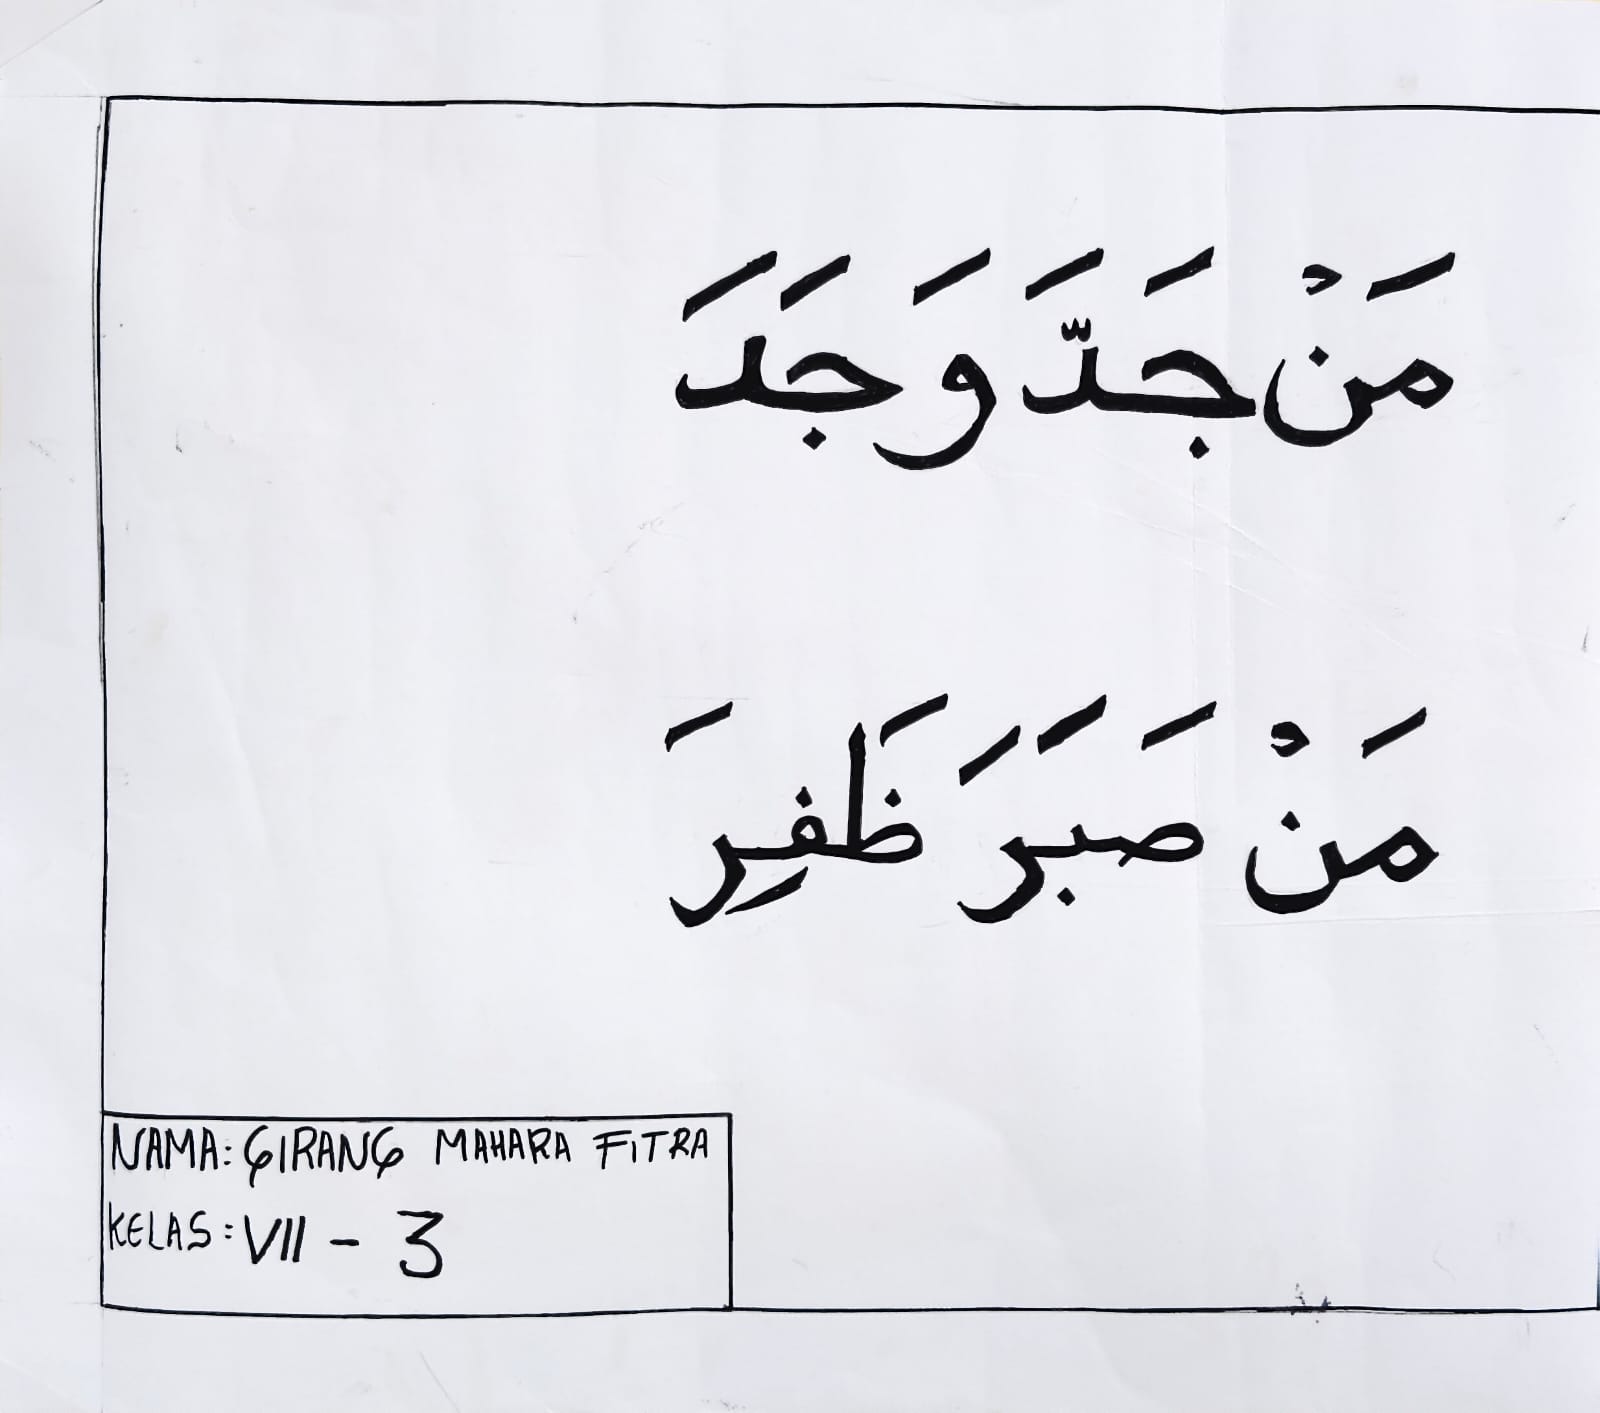 مَنْ جَدَّ وَجَدَ
مَنْ صَبَرَ ظَفِرَ
NAMA: GIRANG MAHARA FITRA
KELAS: VII - 3